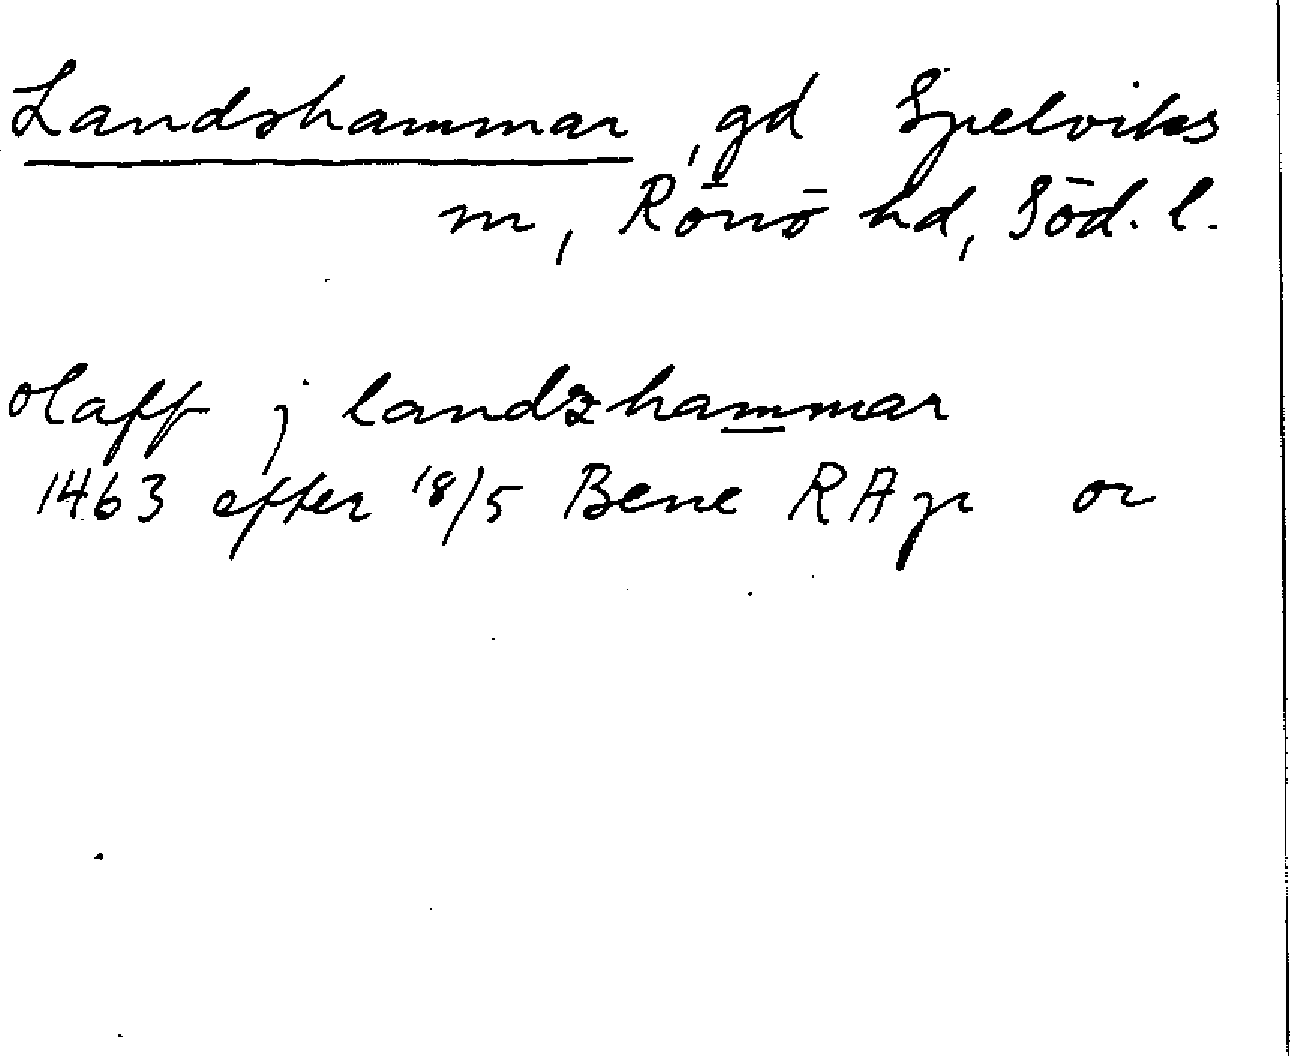 Landshammar, gd Spelviks
sn, Rönö hd, Söd. l.
olaff j landzhammar
1463 efter 18/5 Bene RAp or